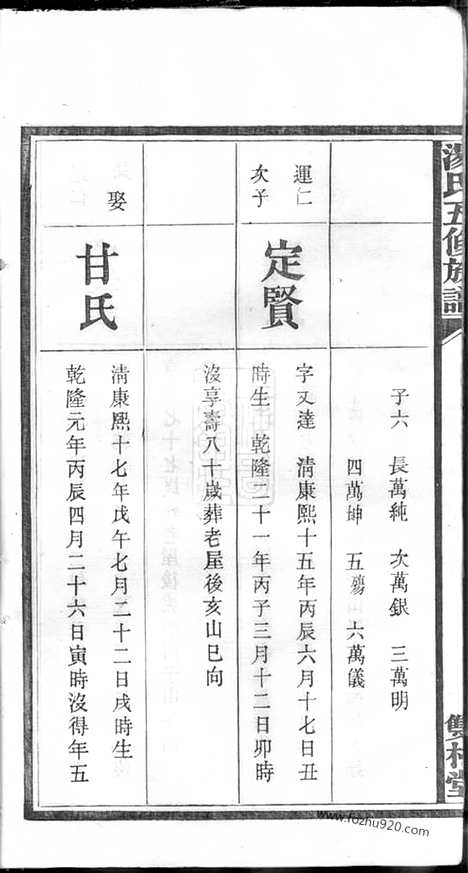 湯氏五修族譜
雙桂堂
子六 長萬純 次萬銀 三萬明
四萬坤 五殤 六萬儀
運仁
次子
定賢
字又達 清康熙十五年丙辰六月十七日丑
時生 乾隆二十一年丙子三月十二日卯時
沒享壽八十歲葬老屋後亥山巳向
娶
甘氏
清康熙十七年戊午七月二十二日戌時生
乾隆元年丙辰四月二十六日寅時沒得年五
www.fozhu920.com